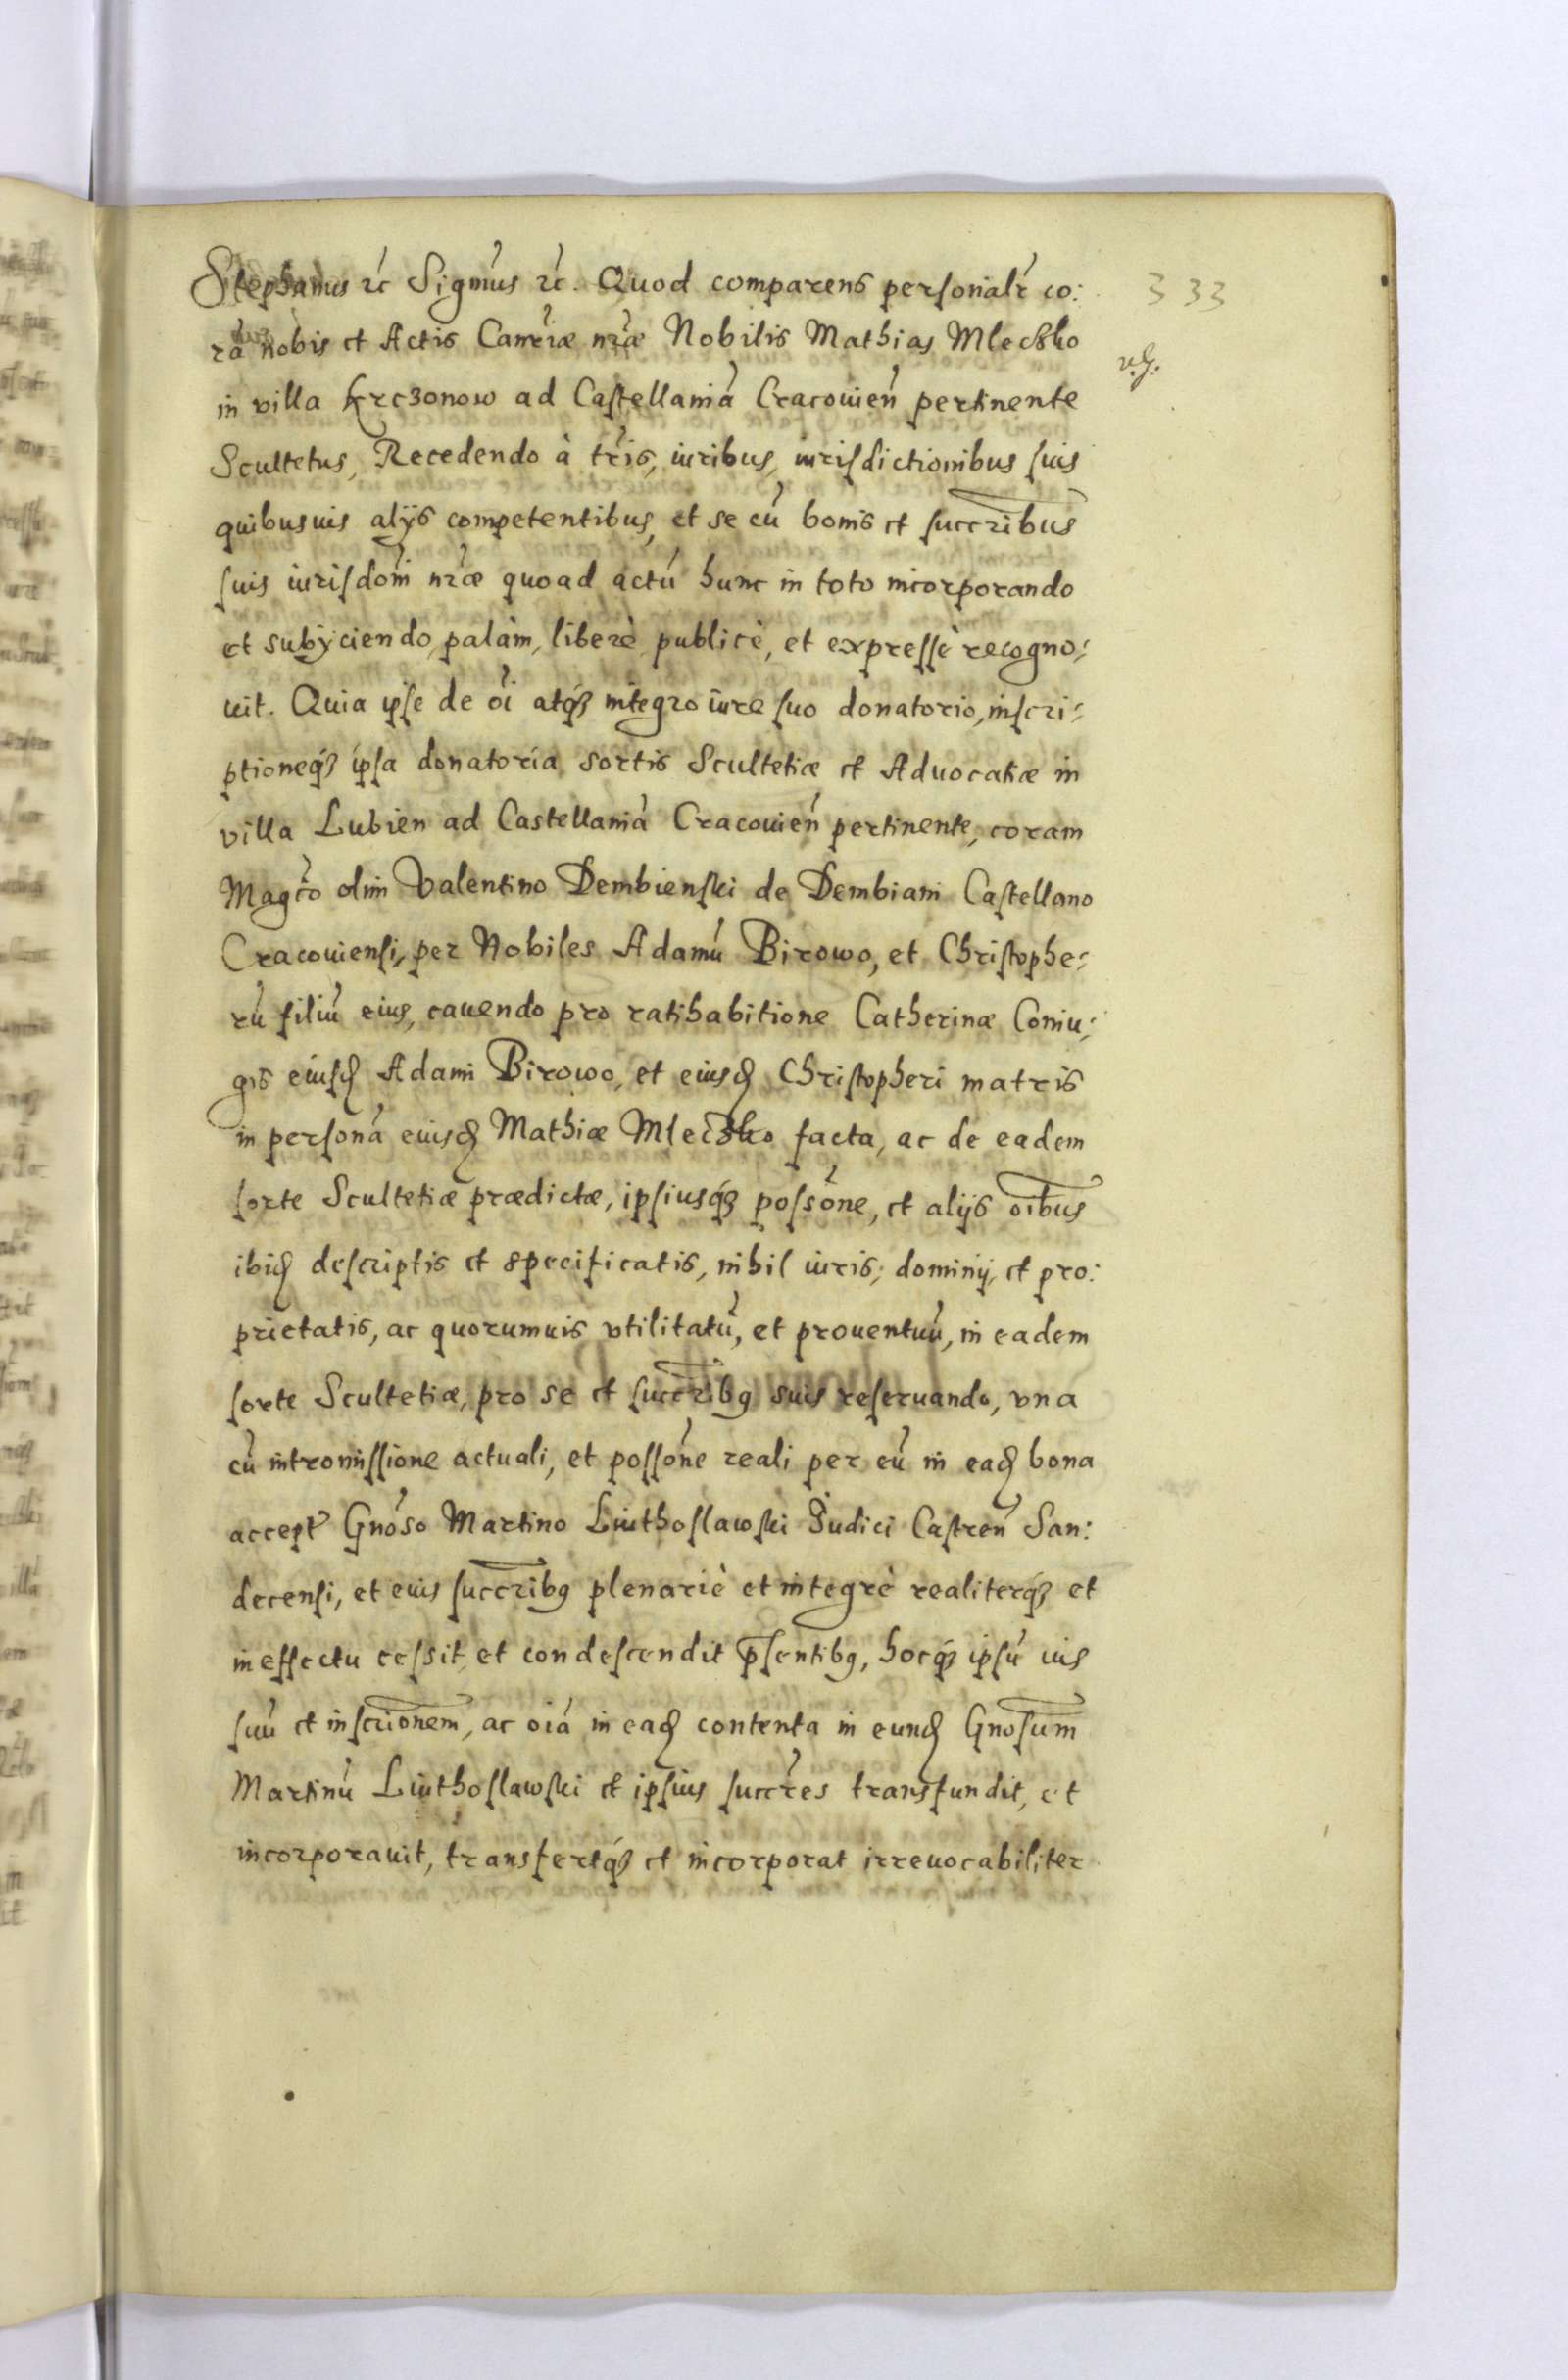 Stephanus ꝛc Sigm̃us ꝛc. Quod comparens personalr̃ co:
rã nobis et Actis Canc̃riæ nr̃æ Nobilis Mathias Mleczko
in villa Krczonow ad Castellaniã Cracouieñ pertinente
Scultetus, Recedendo à tr̃is, iuribus, iurisdictionibus suis
quibusuis alijs competentibus, et se cũ bonis et succr̃ibus
suis iurisdõni nr̃æ quoad actũ hunc in toto incorporando
et subijciendo, palàm, liberè publicè, et expressè recogno:
uit. Quia ipse de õi atq́ꝫ integro iure suo donatorio, inscri:
ptioneq́ꝫ ipsa donatoria sortis Scultetiæ et Aduocatiæ in
villa Lubien ad Castellaniã Cracouieñ pertinente, coram
Magc̃o olim Valentino Dembienski de Dembiani Castellano
Cracouiensi, per Nobiles Adamũ Birowo, et Christophe:
rũ filiũ eius, cauendo pro ratihabitione Catherinæ Coniu:
gis eiusꝺ Adami Birowo, et eiusꝺ Christopheri matris
in personã eiusꝺ Mathiæ Mleczko facta, ac de eadem
sorte Scultetiæ prædictæ, ipsiusq́ꝫ possõne, et alijs oĩbus
ibiꝺ descriptis et specificatis, nihil iuris, dominij, et pro:
prietatis, ac quorumuis vtilitatũ, et prouentuũ, in eadem
sorte Scultetiæ, pro se et succr̃ibꝯ suis reseruando, vna
cũ intromissione actuali, et possõne reali per eũ in eaꝺ bona
accept̃ Gnõso Martino Liuthoslawski Iudici Castreñ San:
decensi, et eius succr̃ibꝯ plenariè et integrè realiterq́ꝫ et
in effectu cessit, et condescendit p̃sentibꝯ, hocq́ꝫ ipsũ ius
suũ et inscriõnem, ac oĩa in eaꝺ contenta in eunꝺ Gnõsum
Martinũ Liuthoslawski et ipsius succr̃es transfundit, et
incorporauit, transfertq́ꝫ et incorporat irreuocabiliter
333